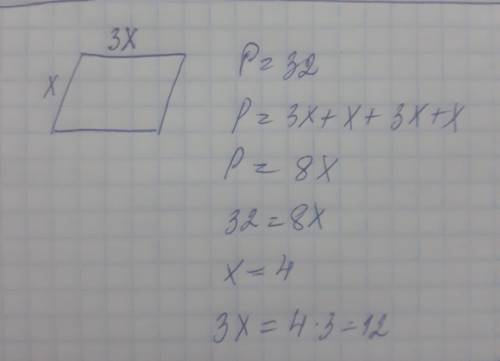 3x
x
P = 32
P = 3x + x + 3x + x
P = 8x
32 = 8x
x = 4
3x = 4 · 3 = 12